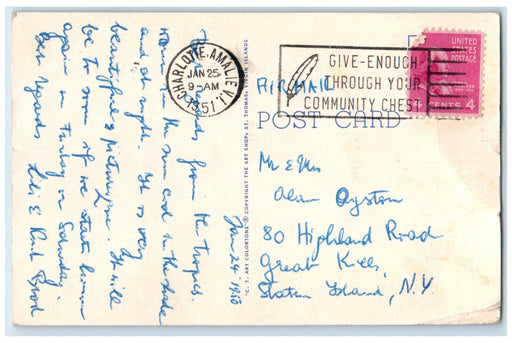 from the tropics.
warm in the sun and in the shade
and at night. It is very
beautiful & picturesque. It will
be too soon if we start home
again on Sunday or Saturday.
Best regards
Jan 24 1950
CHARLOTTE AMALIE V.I.
JAN 25
9-AM
1951
GIVE-ENOUGH
THROUGH YOUR
COMMUNITY CHEST
UNITED
STATES
POSTAGE
CENTS 4
AIR MAIL
POST CARD
"C. T. ART COLORTONE" © COPYRIGHT THE ART SHOP, ST. THOMAS, VIRGIN ISLANDS
Mr & Mrs
Alan Oyston
80 Highland Road
Great Kills,
Staten Island, N.Y